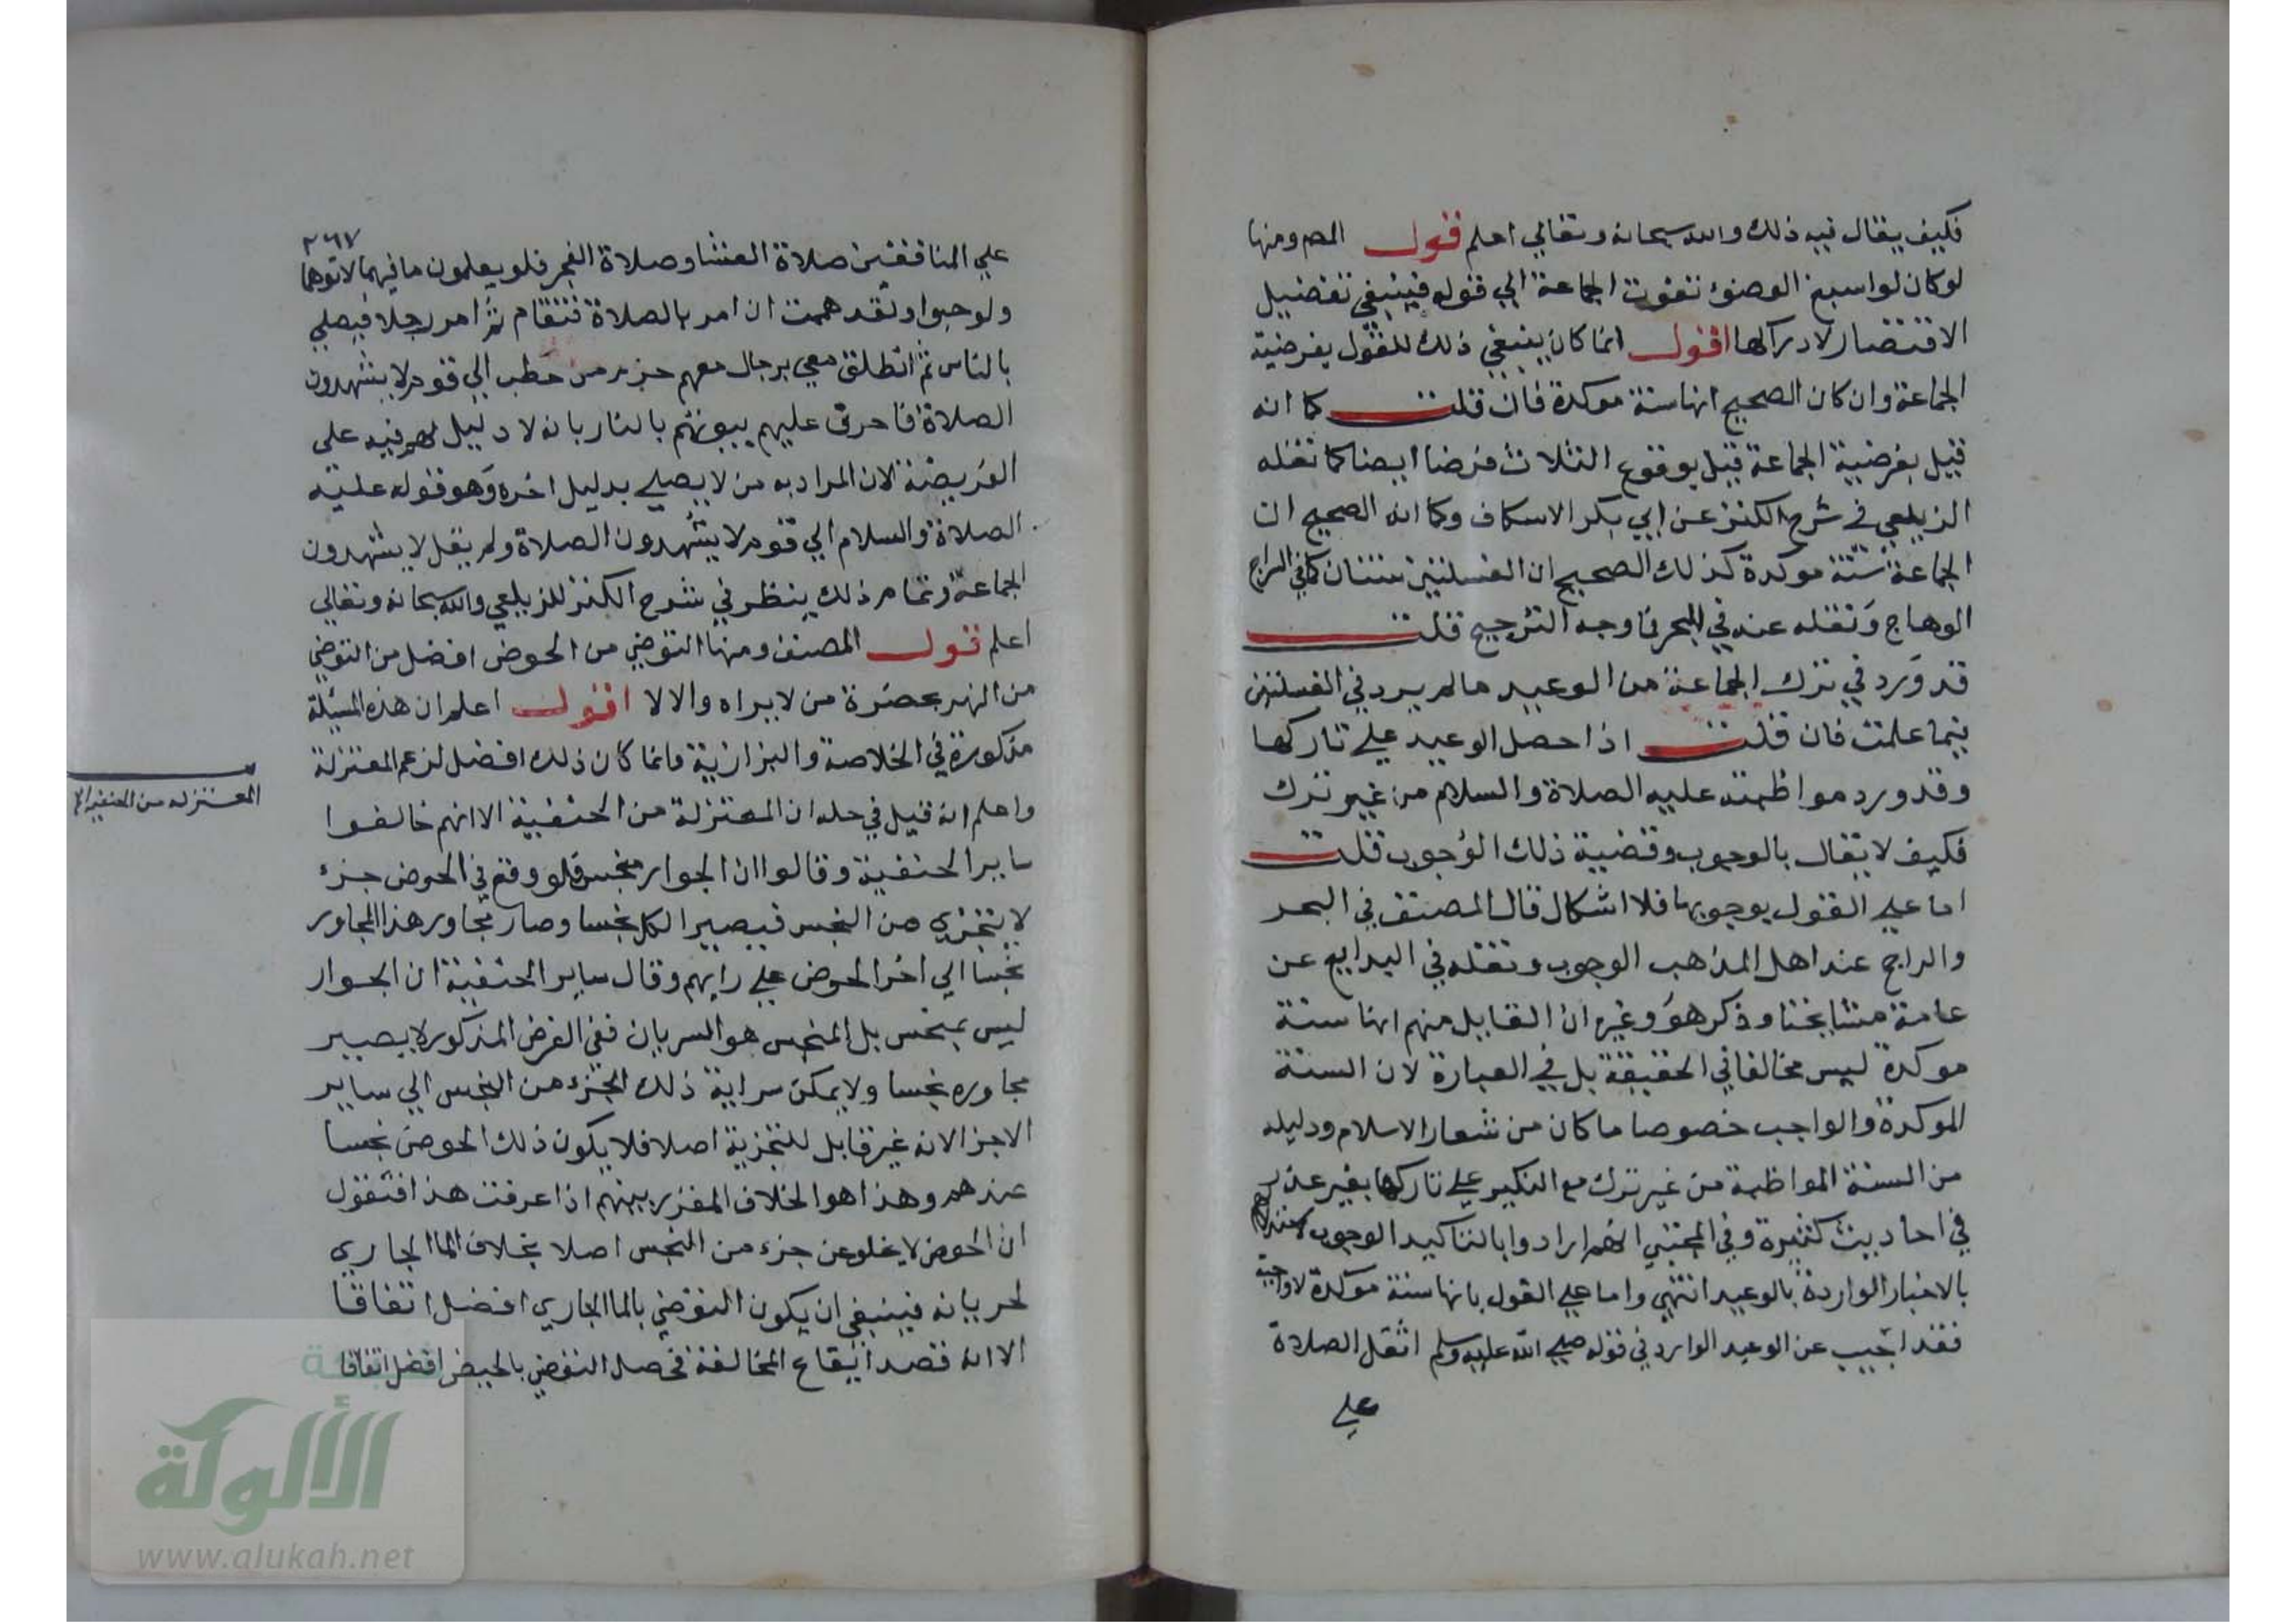 فكيف يقال فيه ذلك والله سبحانه وتعالي اعلم قول المص ومنها
لو كان لو اسبغ الوضوء تفوت الجماعة الي قوله فينبغي تفضيل
الاقتصار لادراكها اقول انما كان ينبغي ذلك للقول بفرضية
الجماعة وان كان الصحيح انها سنة موكدة فان قلت كما انه
قيل بفرضية الجماعة قيل بوقوع الثلاث فرضا ايضا كما نقله
الزيلعي في شرح الكنز عن ابي بكر الاسكاف وكما انه الصحيح ان
الجماعة سنة موكدة كذلك الصحيح ان الغسلتين سنتان كما في السراج
الوهاج ونقله عنه في البحر فما وجه الترجيح قلت
قد ورد في ترك الجماعة من الوعيد مالم يرد في الغسلتين
فيما علمت فان قلت اذا حصل الوعيد علي تاركها
وقد ورد مواظبته عليه الصلاة والسلام من غير ترك
فكيف لا يقال بالوجوب وقضية ذلك الوجوب قلت
اما علي القول بوجوبها فلا اشكال قال المصنف في البحر
والراجح عند اهل المذاهب الوجوب ونقله في البدايع عن
عامة مشايخنا وذكر هو وغيره ان القايل منهم انها سنة
موكدة ليس مخالفا في الحقيقة بل في العبارة لان السنة
الموكدة والواجب خصوصا ما كان من شعار الاسلام ودليله
من السنة المواظبة من غير ترك مع النكير علي تاركها بغير عذر
في احاديث كثيرة وفي المجتبي انهم ارادوا بالتاكيد الوجوب لاستدلالهم
بالاخبار الواردة بالوعيد انتهي واما علي القول بانها سنة موكدة لا واجبة
فقد اجيب عن الوعيد الوارد في قوله صلي الله عليه وسلم اثقل الصلاة
علي
٢٦٧
علي المنافقين صلاة العشا وصلاة الفجر فلو يعلمون ما فيهما لاتوهما
ولو حبوا ولقد هممت ان امر بالصلاة فتقام ثم امر رجلا فيصلي
بالناس ثم انطلق معي برجال معهم حزم من حطب الي قوم لا يشهدون
الصلاة فاحرق عليهم بيوتهم بالنار بانه لا دليل لهم فيه على
الفريضة لان المراد به من لا يصلي بدليل اخره وهو قوله عليه
الصلاة والسلام الي قوم لا يشهدون الصلاة ولم يقل لا يشهدون
الجماعة وتمام ذلك ينظر في شرح الكنز للزيلعي والله سبحانه وتعالي
اعلم قول المصنف ومنها التوضي من الحوض افضل من التوضي
من النهر بحضرة من لا يراه والا لا اقول اعلم ان هذه المسئلة
مذكورة في الخلاصة والبزازية وانما كان ذلك افضل لزعم المعتزلة
واعلم انه قيل في حله ان المعتزلة من الحنفية الا انهم خالفوا
ساير الحنفية وقالوا ان الجوار منجس فلو وقع في الحوض جزء
لا يتجزي من النجس فيصير الكل نجسا وصار مجاور هذا المجاور
نجسا الي اخر الحوض علي رايهم وقال ساير الحنفية ان الجوار
ليس بمنجس بل المنجس هو السريان ففي الفرض المذكور لا يصير
مجاوره نجسا ولا يمكن سراية ذلك الجزء من النجس الي ساير
الاجزا لانه غير قابل للتجزية اصلا فلا يكون ذلك الحوض نجسا
عندهم وهذا هو الخلاف المقرر بينهم اذا عرفت هذا فنقول
ان الحوض لا يخلو عن جزء من النجس اصلا بخلاف الما الجاري
لجريانه فينبغي ان يكون التوضي بالما الجاري افضل اتفاقا
الا انه قصد ايقاع المخالفة فحصل التوضي بالحيض افضل اتفاقا
المعتزله من الحنفيه الا
الألوكة
www.alukah.net